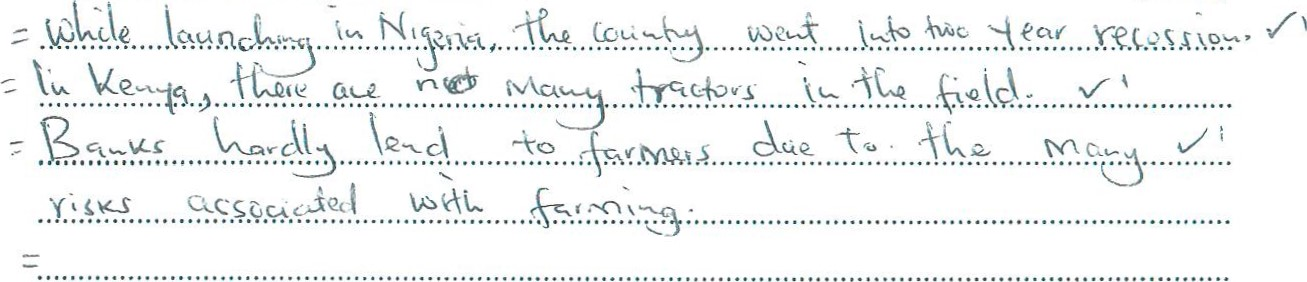 = While launching in Nigeria, the country went into two year recession. ✓1
= In Kenya, there are not many tractors in the field. ✓1
= Banks hardly lend to farmers due to the many ✓1
risks associated with farming.
=